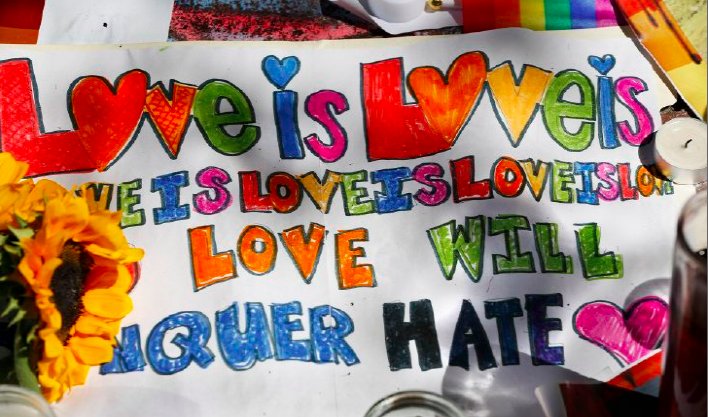 Love is Love is
VE IS LOVE IS LOVE IS LOV
LOVE WILL
NQUER HATE